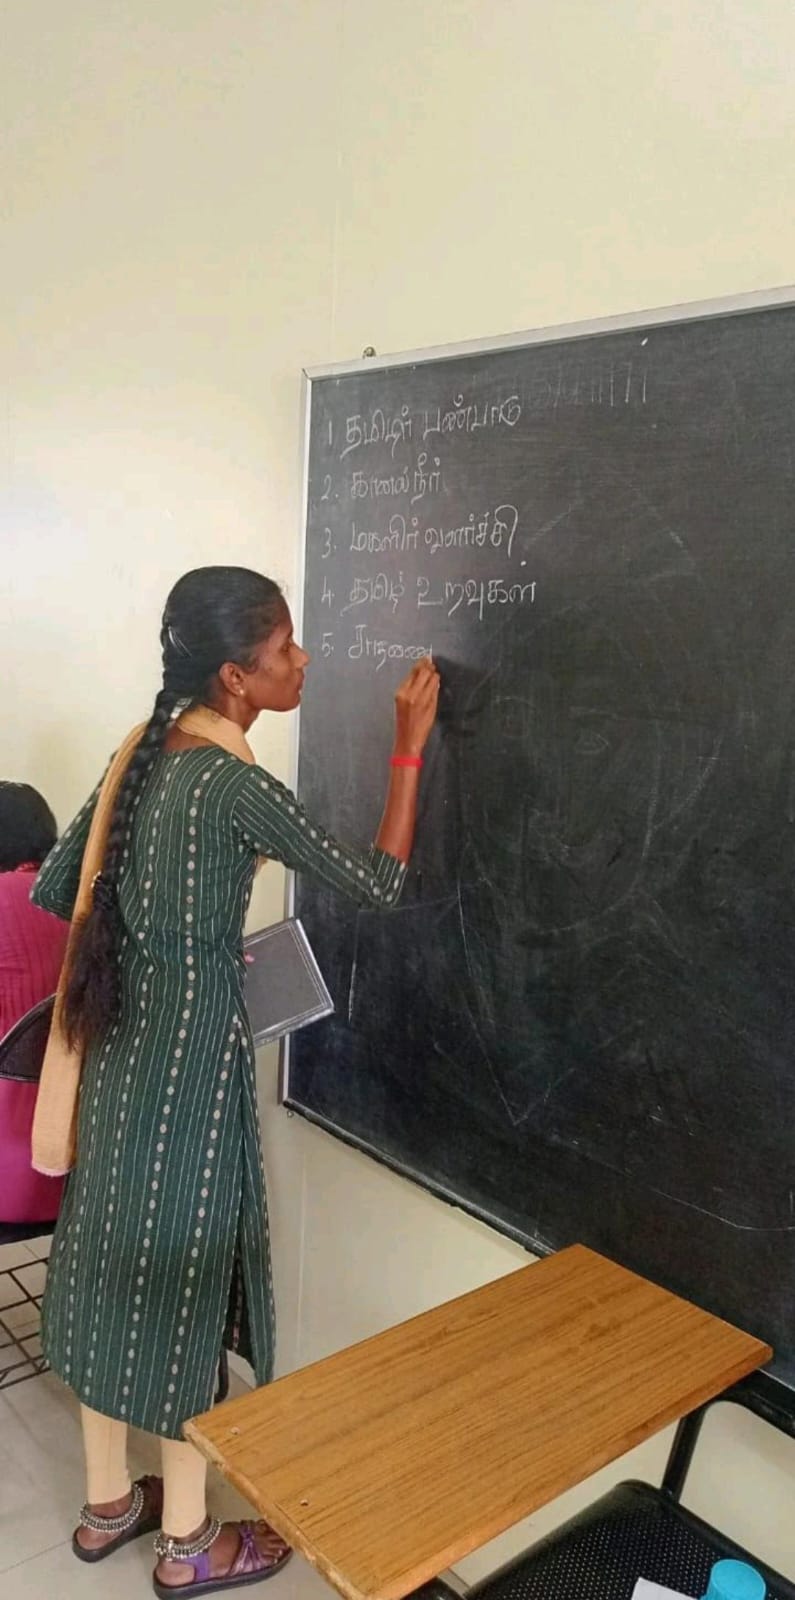 1 தமிழர் பண்பாடு
2. கானல் நீர்
3. மகளிர் வளர்ச்சி
4. தமிழ் உறவுகள்
5.